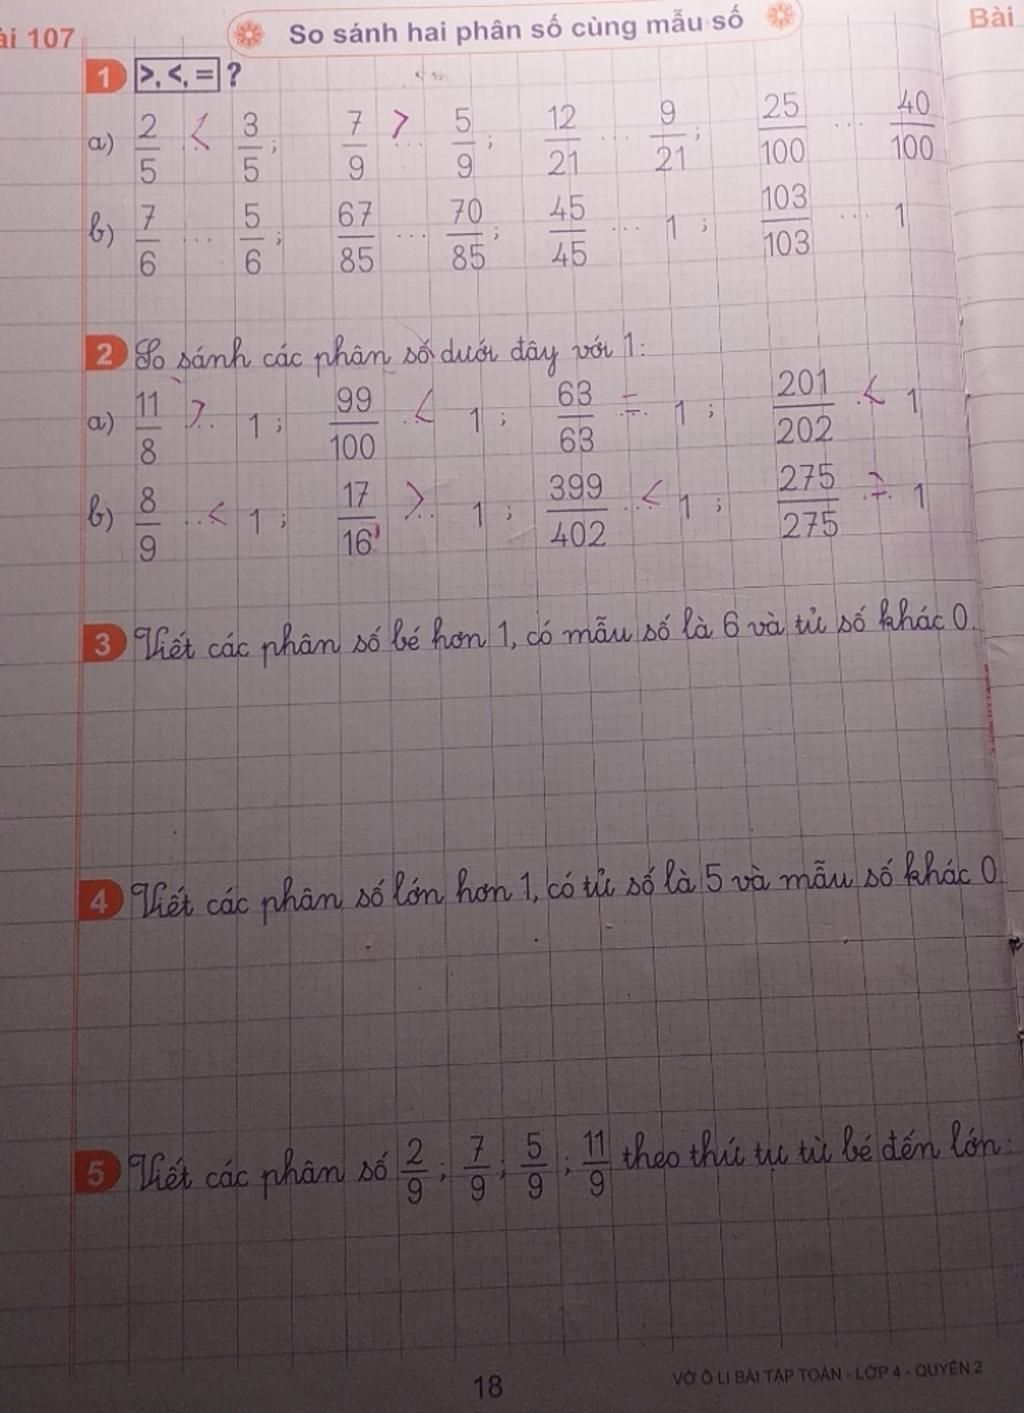 ài 107
So sánh hai phân số cùng mẫu số
Bài
1 >, <, = ?
a) 2/5 < 3/5 ; 7/9 > ... 5/9 ; 12/21 ... 9/21 ; 25/100 ... 40/100
b) 7/6 ... 5/6 ; 67/85 ... 70/85 ; 45/45 ... 1 ; 103/103 ... 1
2 So sánh các phân số dưới đây với 1:
a) 11/8 > 1 ; 99/100 < 1 ; 63/63 = 1 ; 201/202 < 1
b) 8/9 < 1 ; 17/16 > 1 ; 399/402 < 1 ; 275/275 = 1
3 Viết các phân số bé hơn 1, có mẫu số là 6 và tử số khác 0.
4 Viết các phân số lớn hơn 1, có tử số là 5 và mẫu số khác 0
5 Viết các phân số 2/9 ; 7/9 ; 5/9 ; 11/9 theo thứ tự từ bé đến lớn:
18
VỞ Ô LI BÀI TẬP TOÁN - LỚP 4 - QUYỂN 2